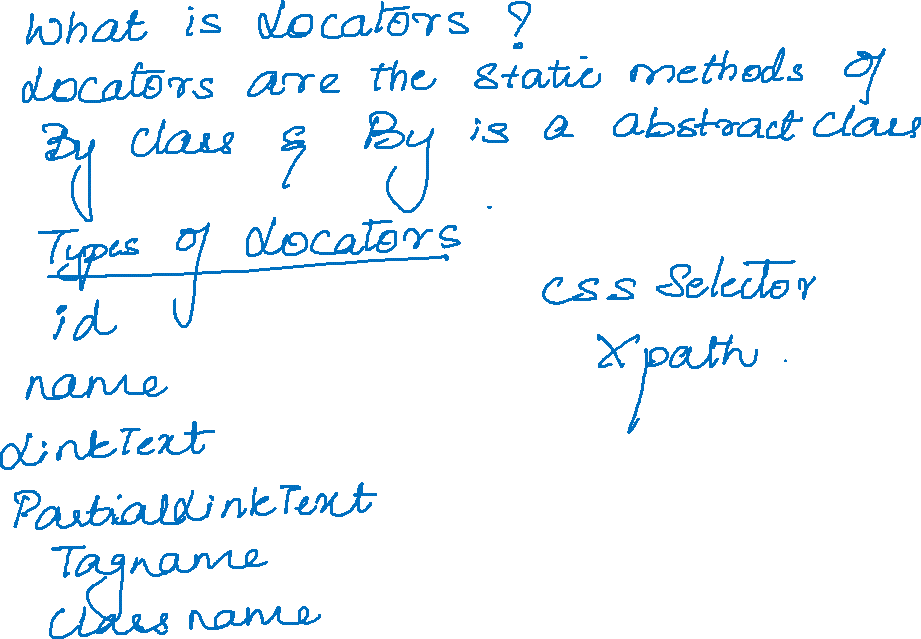 What is Locators ?
Locators are the static methods of
By class & By is a abstract class
Types of Locators
id
name
LinkText
PartialLinkText
Tagname
Class name
css Selector
Xpath .